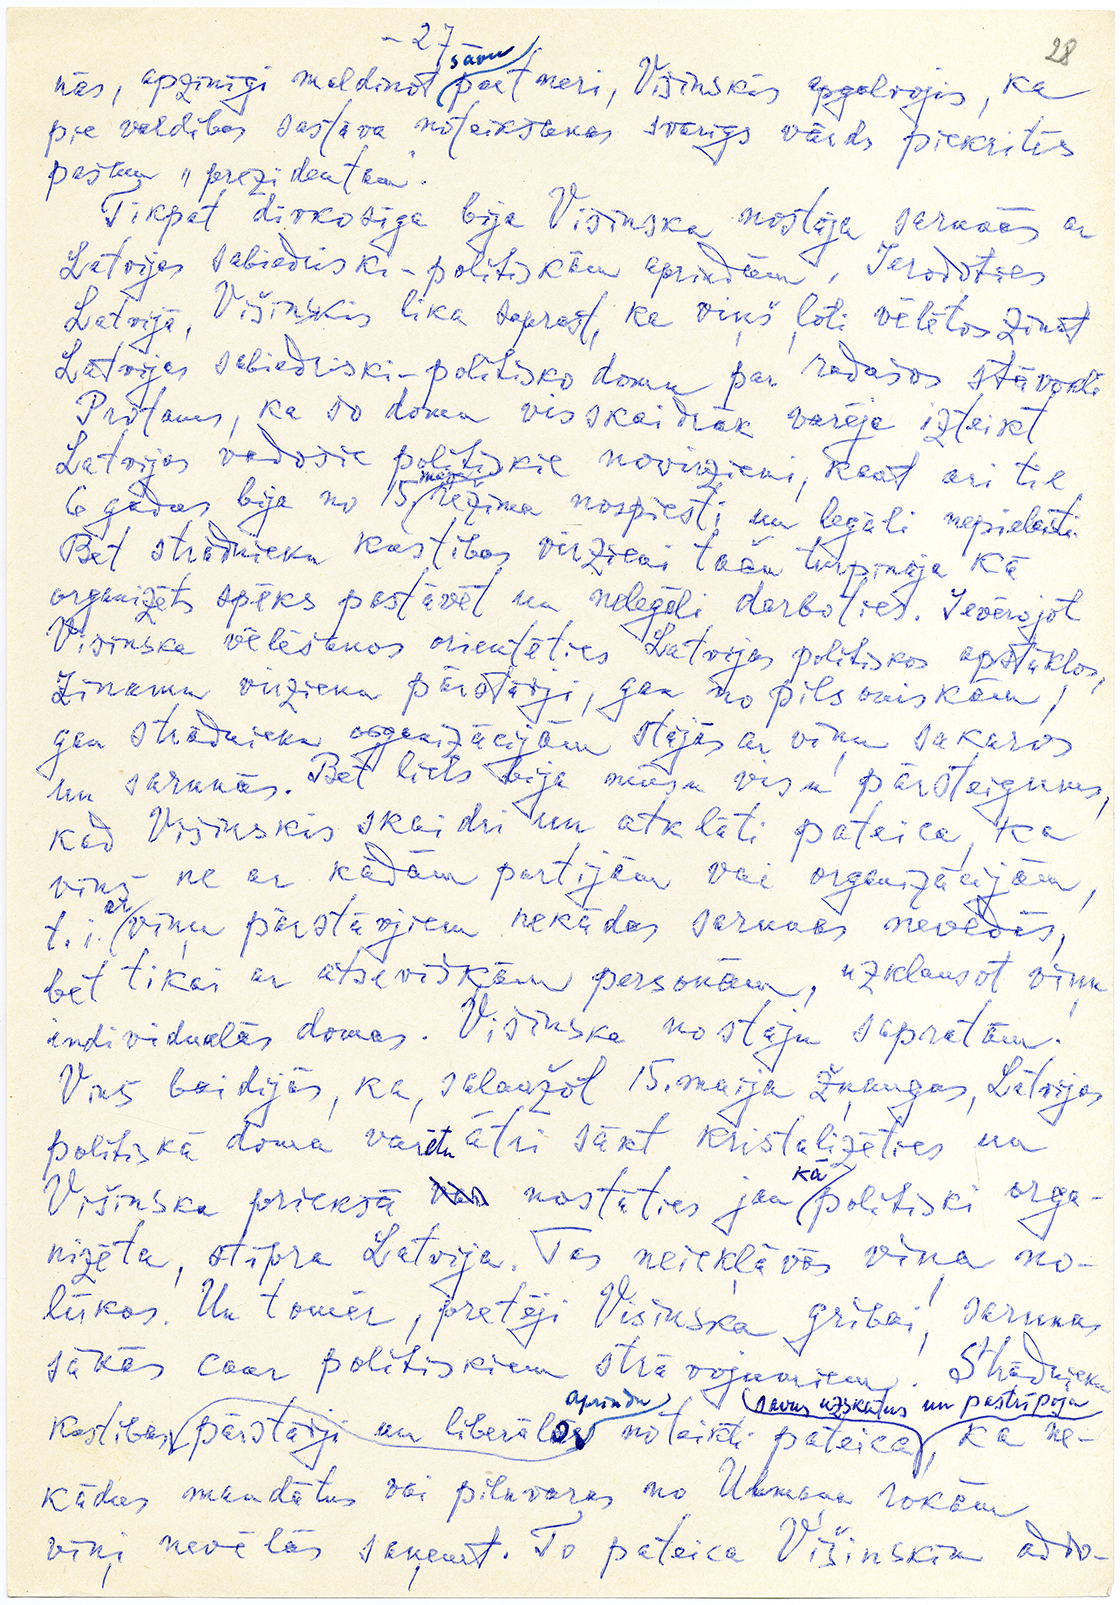 - 27 28
nās, apzinīgi maldinot savu partneri, Višinskis apgalvojis, ka
pie valdības sastāva noteikšanas svarīgs vārds piekritīs
pašam "prezidentam".
Tikpat divkosīga bija Višinska nostāja sarunās ar
Latvijas sabiedriski-politiskām aprindām. Ierodoties
Latvijā, Višinskis lika saprast, ka viņš ļoti vēlētos zināt
Latvijas sabiedriski-politisko domu par radušos stāvokli
Protams, ka šo domu visskaidrāk varēja izteikt
Latvijas vadošie politiskie novirzieni, kaut arī tie
6 gadus bija no 15. maija režīma nospiesti un legāli nepielaisti.
Bet strādnieku kustības virzieni taču turpināja kā
organizēts spēks pastāvēt un nelegāli darboties. Ievērojot
Višinska vēlēšanos orientēties Latvijas politiskos apstākļos,
zināmu virzienu pārstāvji, gan no pilsoniskām,
gan strādnieku organizācijām stājās ar viņu sakaros
un sarunās. Bet liels bija mūsu visu pārsteigums,
kad Višinskis skaidri un atklāti pateica, ka
viņš ne ar kādām partijām vai organizācijām,
t. i. ar viņu pārstāvjiem nekādas sarunas nevedīs,
bet tikai ar atsevišķām personām, uzklausot viņu
individuālās domas. Višinska nostāju sapratām.
Viņš baidījās, ka, salaužot 15. maija žņaugus, Latvijas
politiskā doma varētu ātri sākt kristalizēties un
Višinska priekšā nostāties jau kā politiski orga-
nizēta, stipra Latvija. Tas neiekļāvās viņa no-
lūkos. Un tomēr, pretēji Višinska gribai, sarunas
sākās caur politiskiem strāvojumiem. Strādnieku
kustības pārstāvji un liberālo aprindu noteikti pateica savus uzskatus un pastrīpoja, ka ne-
kādus mandātus vai pilnvaras no Ulmaņa rokām
viņi nevēlas saņemt. To pateica Višinskim